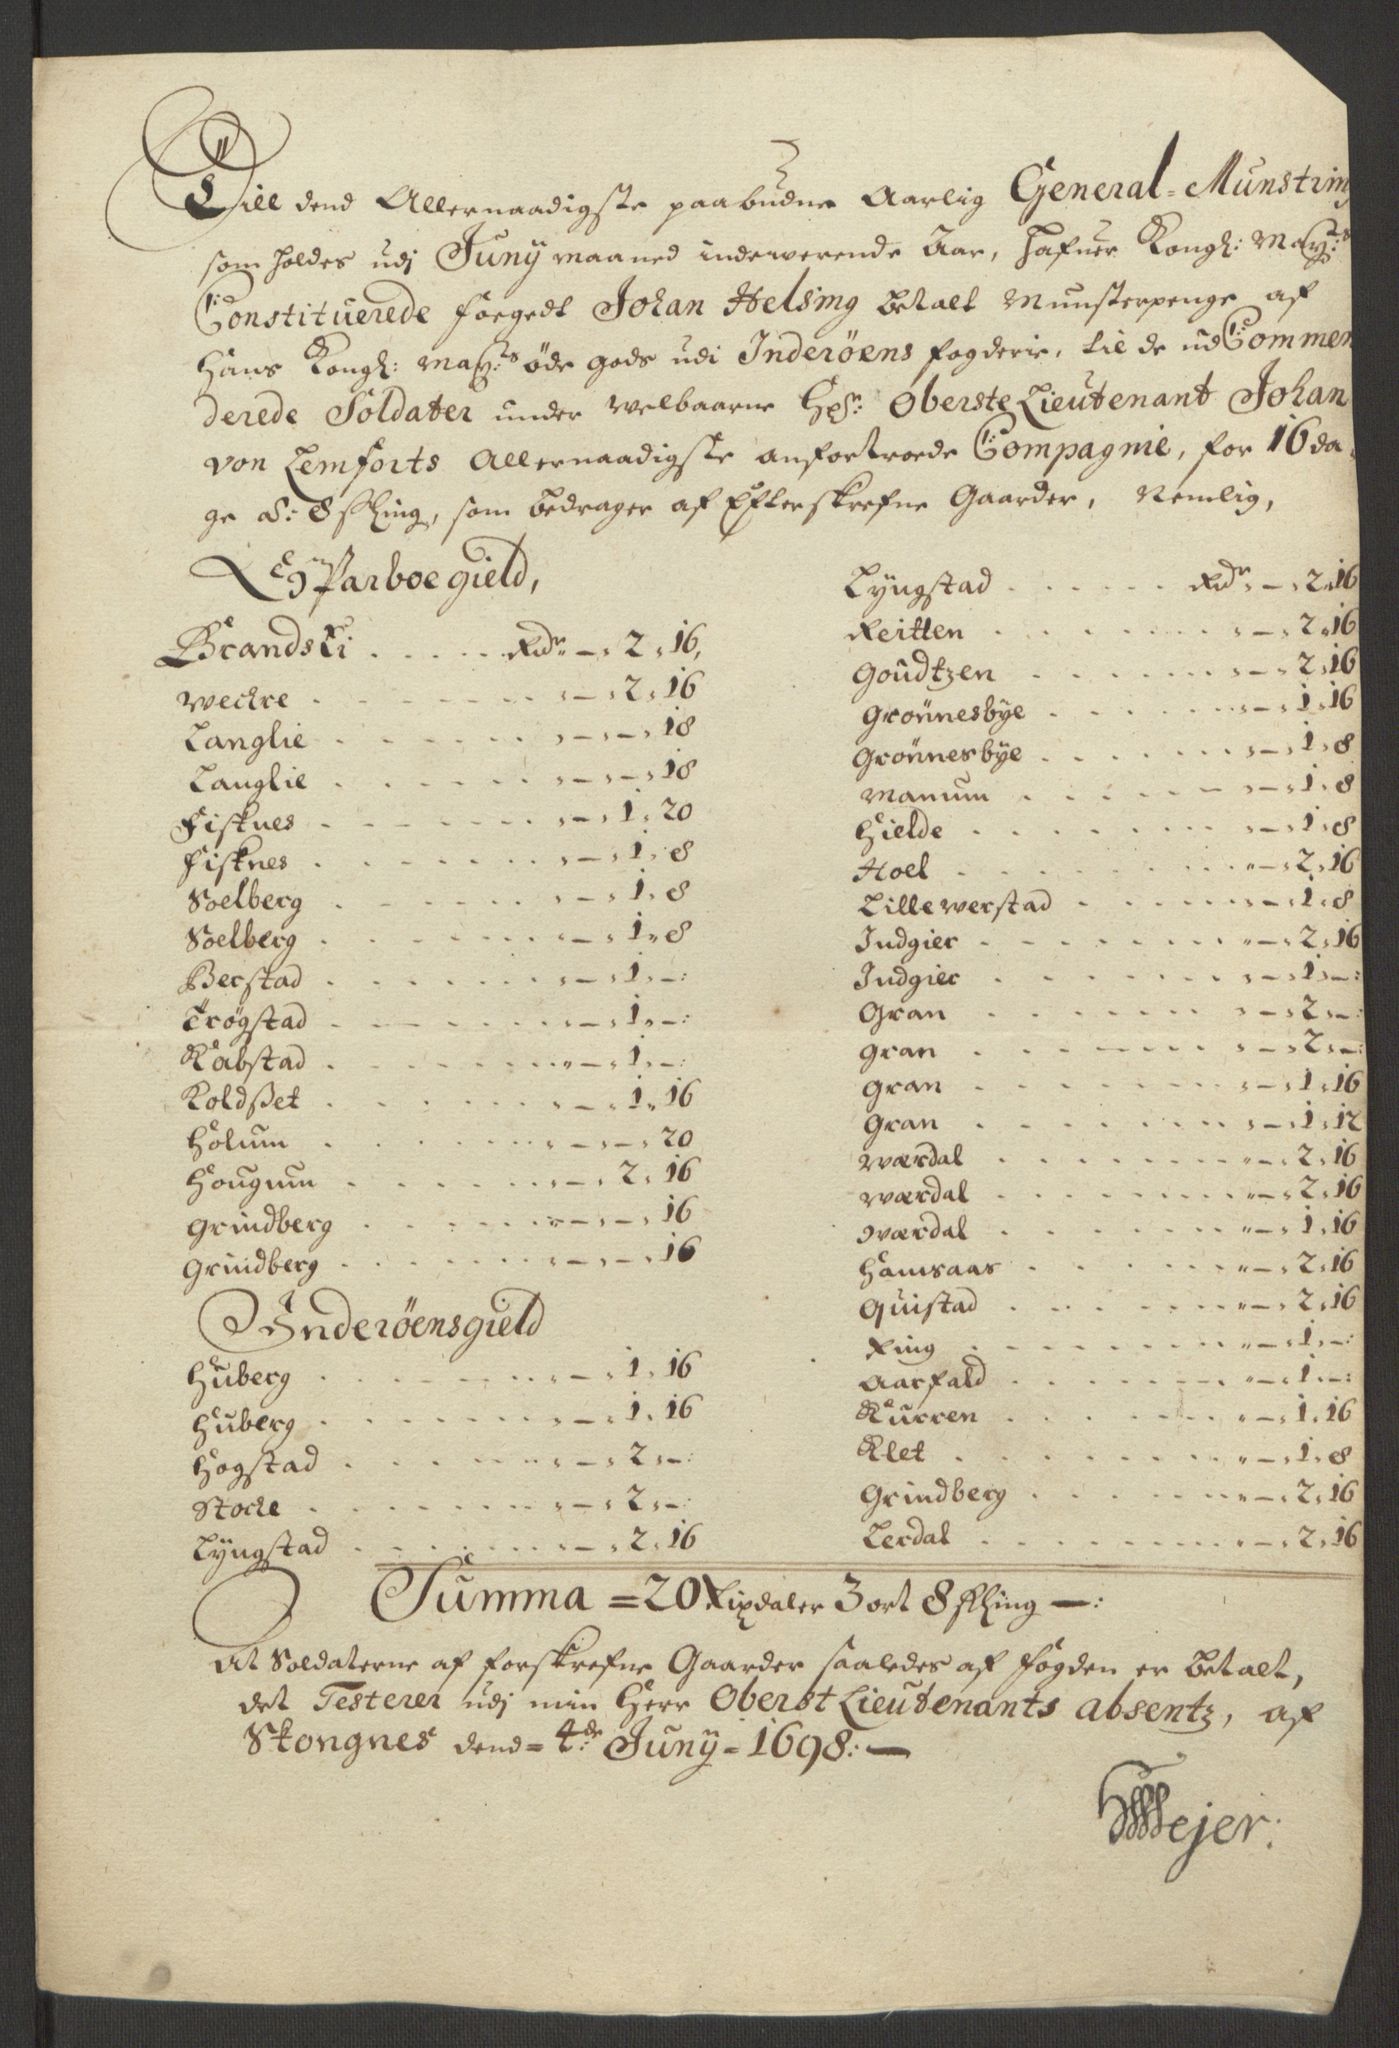 Till dend Allernaadigste paabudne Aarlig General-Munstring
som holdes udj Juny maaned indewerende Aar, hafuer Kongl: May:ts
Constituerede foegedt Johan Helsing betalt Munsterpenge af
Hans Kongl: May:ts öde gods udi Inderöens fogderie, til de ud Commen
derede Soldater under Welbaarne Hr: Oberste Lieutenant Johan
von Lemforts Allernaadigste anfortroede Compagnie, for 16 da
ge a: 8 shing, som bedrager af Efterskrefne Gaarder, Nemlig,
Sparboegield,
Brandski . . . . . Rdr - 2 . 16,
Weckre . . . . . - . 2 . 16
Langlie . . . . . - . - . 18
Langlie . . . . . - . - . 18
Fisknes . . . . . - . 1 . 20
Fisknes . . . . . - . 1 . 8
Soelberg . . . . . - . 1 . 8
Soelberg . . . . . - . 1 . 8
Berstad . . . . . - . 1 . -:
Trögstad . . . . . - . 1 . -:
Kabstad . . . . . - . 1 . -:
Koldset . . . . . - . 1 . 16
Holum . . . . . - . - . 20
Hougum . . . . . - . 2 . 16
Grindberg . . . . . - . - . 16
Grindberg . . . . . - . - . 16
Inderöensgield
Huberg . . . . . - . 1 . 16
Huberg . . . . . - . 1 . 16
Hogstad . . . . . - . 2 . -:
Stocke . . . . . - . 2 . -:
Lyngstad . . . . . - . 2 . 16
Lyngstad . . . . . Rdr - . 2 . 16
Reitten . . . . . - . 2 . 16
Goudtzen . . . . . - . 2 . 16
Grönnesbye . . . . . - . 1 . 16
Grönnesbye . . . . . - . 1 . 8
Manum . . . . . - . 1 . 8
Hielde . . . . . - . 1 . 8
Hoel . . . . . - . 2 . 16
Lille werstad . . . . . - . 1 . 8
Indgier . . . . . - . 2 . 16
Indgier . . . . . - . 1 . -:
Gran . . . . . - . 2 . -:
Gran . . . . . - . 2 . -:
Gran . . . . . - . 1 . 16
Gran . . . . . - . 1 . 12
Wærdal . . . . . - . 2 . 16
Wærdal . . . . . - . 2 . 16
Wærdal . . . . . - . 1 . 16
Hamsaas . . . . . - . 2 . 16
Quistad . . . . . - . 2 . 16
Ring . . . . . - . 1 . -:
Aarfald . . . . . - . 1 . -:
Kurren . . . . . - . 1 . 16
Klet . . . . . - . 1 . 8
Grindberg . . . . . - . 2 . 16
Lerdal . . . . . - . 2 . 16
Summa = 20 Rixdaler 3 ort 8 shing -:
At Soldaterne af forskrefne Gaarder saaledes af fogden er betalt,
det Testerer udj min Herr Oberst Lieutenants absentz, af
Stongnes dend = 4de Juny = 1698: -
HWejer: